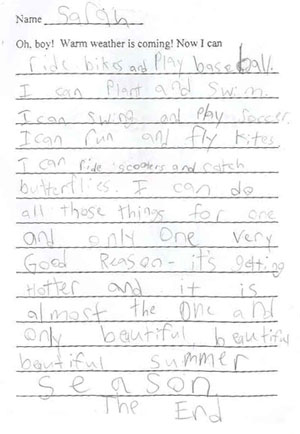 Name Sarah
Oh, boy! Warm weather is coming! Now I can
ride bikes and Play baseball.
I can Plant and Swim.
I can swing and Play Soccer.
I can run and fly kites
I can ride scooters and catch
butterflies. I can do
all those things for one
and only One very
Good Reason- it's getting
Hotter and it is
almost the One and
only beautiful, beautiful
beautiful summer
season
The End